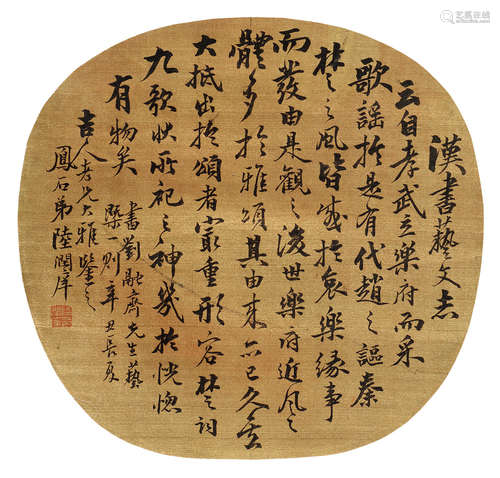 漢書藝文志
云自孝武立樂府而采
歌謠於是有代趙之謳秦
楚之風皆感於哀樂緣事
而發由是觀之後世樂府近風之
體多於雅頌其由来亦已久矣
大抵出於頌者最重形容楚詞
九歌狀所祀之神幾於恍惚
有物矣
書劉融齋先生藝
槩一則辛丑長夏
吉人老兄大雅鑒之
鳳石弟陸潤庠
艺典中国